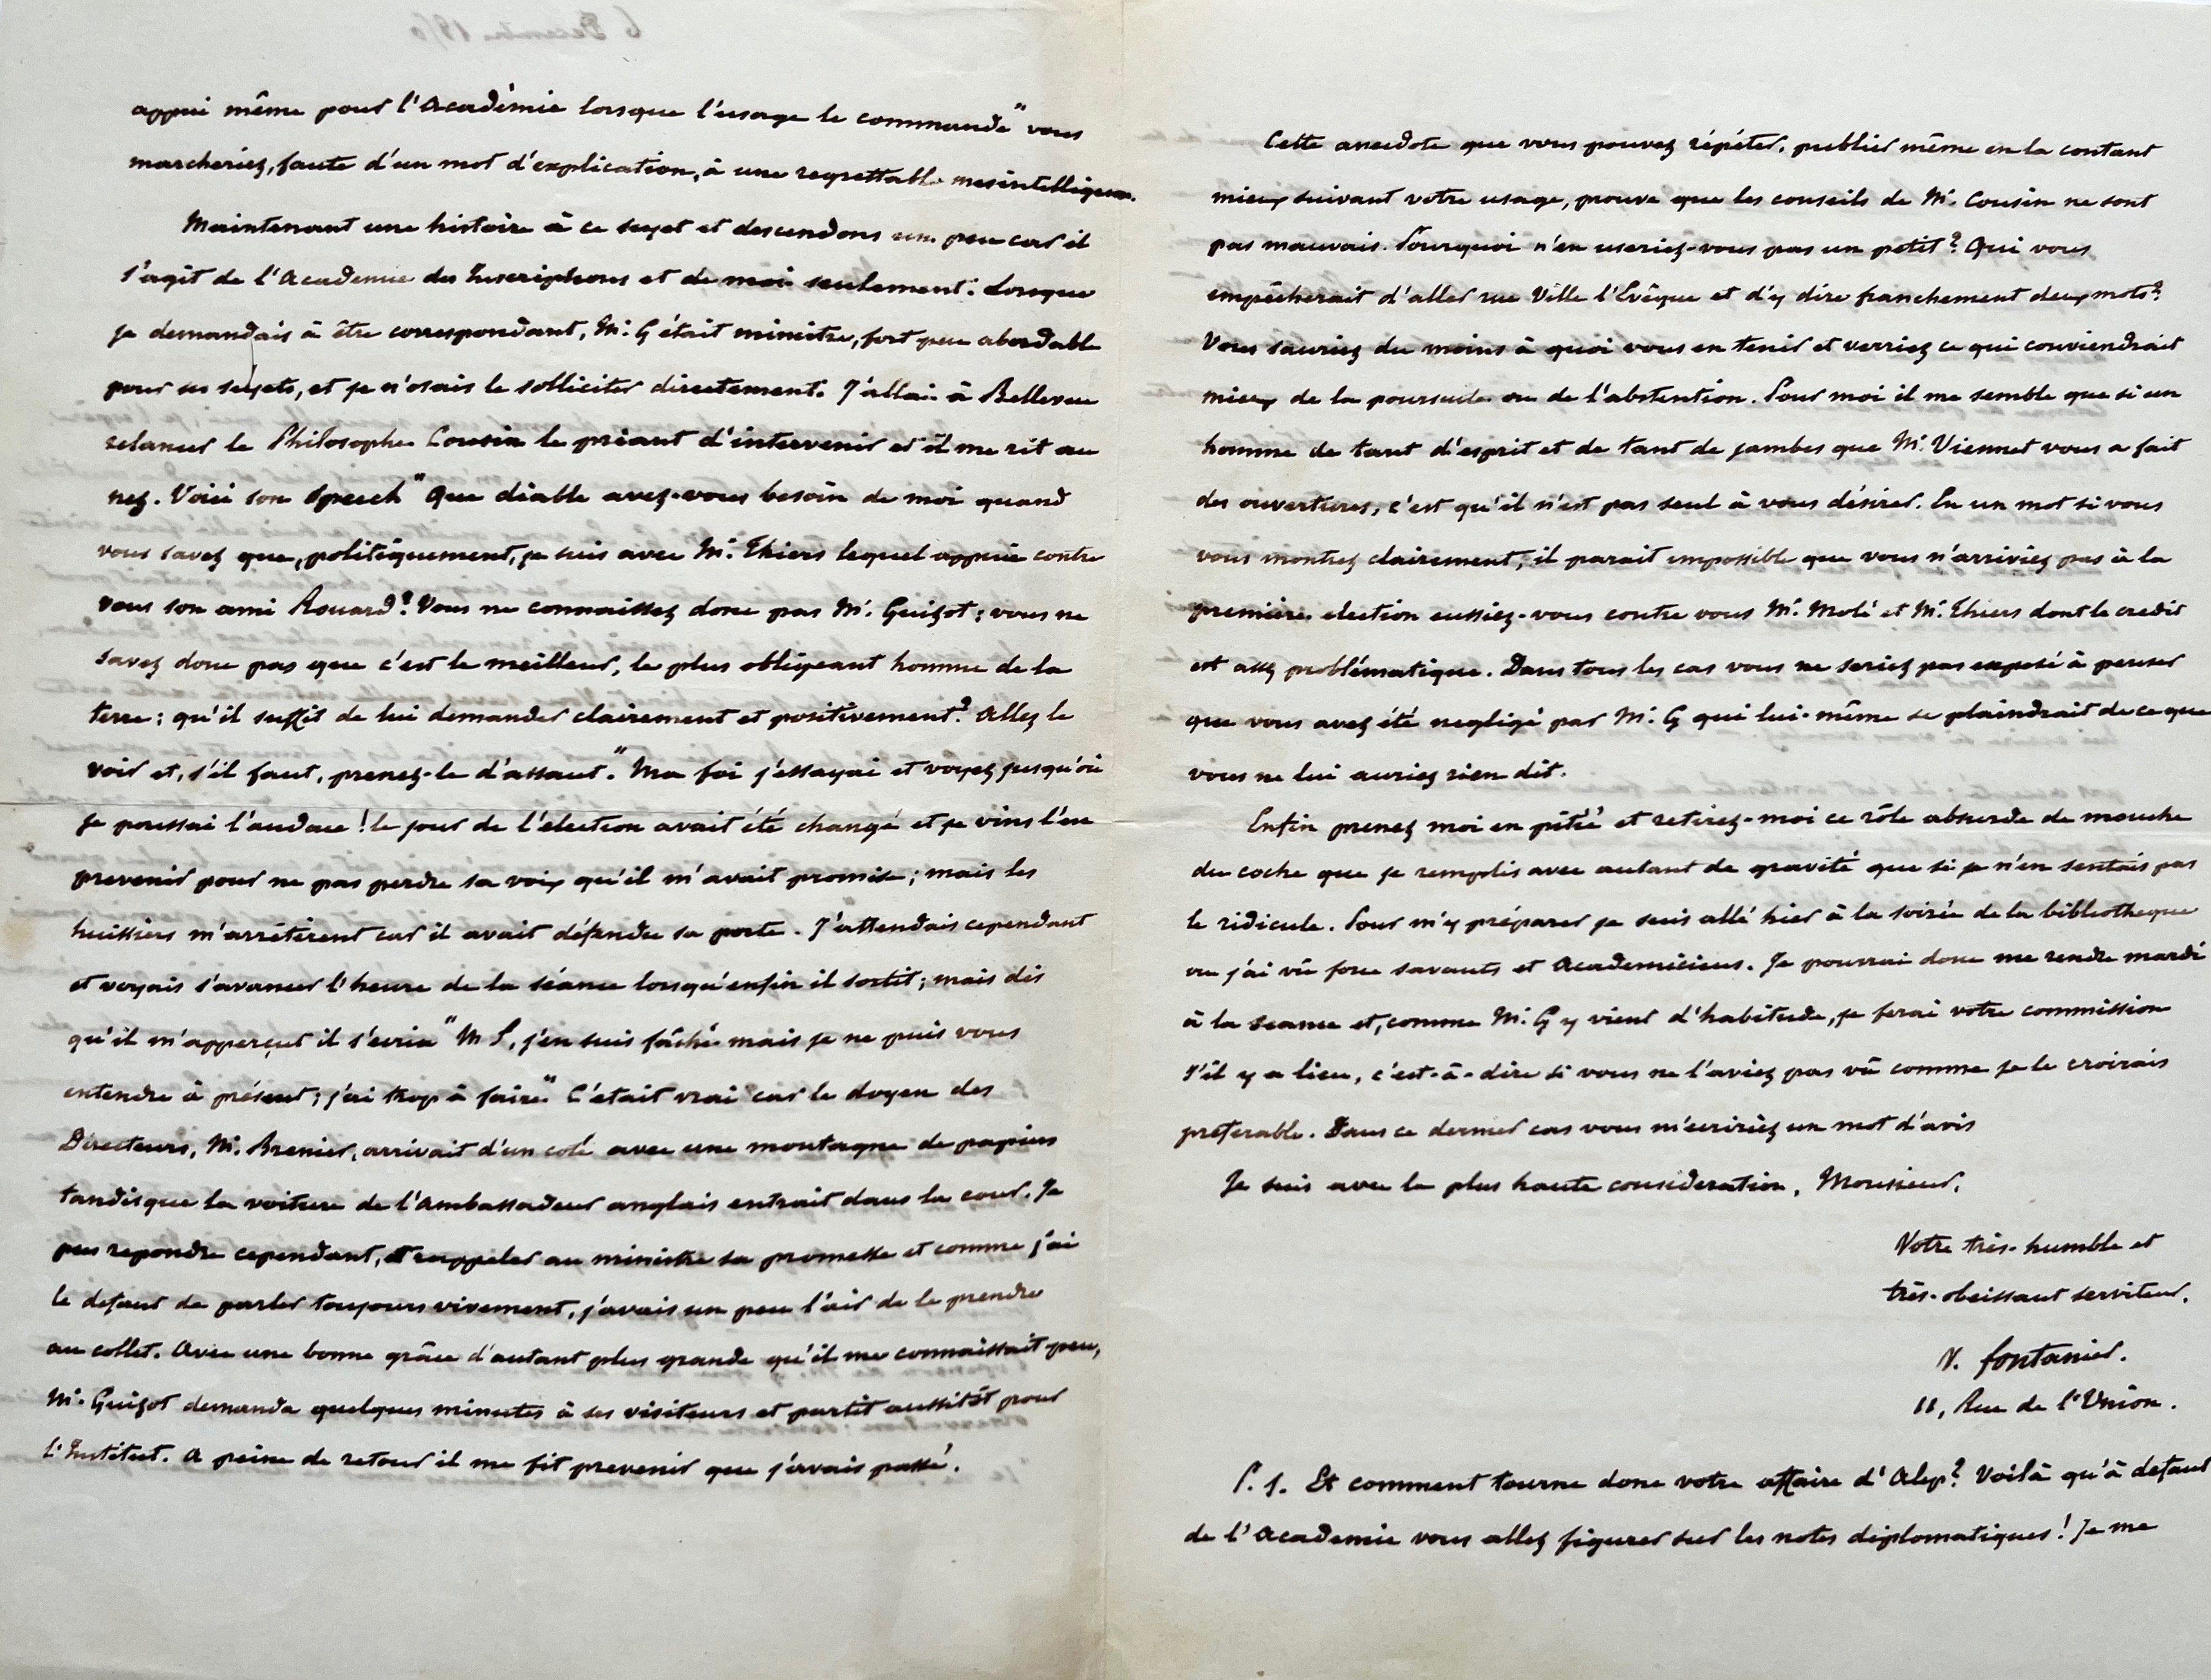 appui même pour l'Académie lorsque l'usage le commande" vous
marcheriez, faute d'un mot d'explication, à une regrettable mesintelligence.
Maintenant une histoire à ce sujet et descendons un peu car il
s'agit de l'Academie des Inscriptions et de moi seulement. Lorsque
je demandais à être correspondant, Mr. G était ministre, fort peu abordable
pour ses sujets, et je n'osais le solliciter directement. J'allai à Bellevue
relancer le Philosophe Cousin le priant d'intervenir et il me rit au
nez. Voici son speech "Que diable avez-vous besoin de moi quand
vous savez que, politiquement, je suis avec Mr. Thiers lequel appuie contre
vous son ami Rouard? Vous ne connaissez donc pas Mr. Guizot; vous ne
savez donc pas que c'est le meilleur, le plus obligeant homme de la
terre; qu'il suffit de lui demander clairement et positivement? Allez le
voir et, s'il faut, prenez-le d'assaut." Ma foi j'essayai et voyez jusqu'où
je poussai l'audace! le jour de l'élection avait été changé et je vins l'en
prevenir pour ne pas perdre sa voix qu'il m'avait promise; mais les
huissiers m'arrétèrent car il avait défendu sa porte. J'attendais cependant
et voyais s'avancer l'heure de la séance lorsqu'enfin il sortit; mais dès
qu'il m'apperçut il s'ecria "M S, j'en suis fâché mais je ne puis vous
entendre à présent; j'ai trop à faire" C'était vrai car le doyen des
Directeurs, Mr. Brenier, arrivait d'un coté avec une montagne de papiers
tandisque la voiture de l'Ambassadeur anglais entrait dans la cour. Je
pus repondre cependant, et rappeler au ministre sa promesse et comme j'ai
le defaut de parler toujours vivement, j'avais un peu l'air de le prendre
au collet. Avec une bonne grâce d'autant plus grande qu'il me connaissait peu,
Mr. Guizot demanda quelques minutes à ses visiteurs et partit aussitôt pour
l'Institut. A peine de retour il me fit prevenir que j'avais passé.
Cette anecdote que vous pouvez répéter, publier même en la contant
mieux suivant votre usage, prouve que les conseils de Mr. Cousin ne sont
pas mauvais. Pourquoi n'en useriez-vous pas un petit? Qui vous
empêcherait d'aller rue Ville l'Evêque et d'y dire franchement deux mots?
Vous sauriez du moins à quoi vous en tenir et verriez ce qui conviendrait
mieux de la poursuite ou de l'abstention. Pour moi il me semble que si un
homme de tant d'esprit et de tant de jambes que Mr. Viennet vous a fait
des ouvertures, c'est qu'il n'est pas seul à vous désirer. En un mot si vous
vous montrez clairement, il parait impossible que vous n'arriviez pas à la
première election eussiez-vous contre vous Mr. Molé et Mr. Thiers dont le credit
est assez problématique. Dans tous les cas vous ne seriez pas exposé à penser
que vous avez été negligé par Mr. G qui lui-même se plaindrait de ce que
vous ne lui auriez rien dit.
Enfin prenez moi en pitié et retirez-moi ce rôle absurde de mouche
du coche que je remplis avec autant de gravité que si je n'en sentais pas
le ridicule. Pour m'y préparer je suis allé hier à la soirée de la bibliotheque
ou j'ai vû force savants et Academiciens. Je pourrai donc me rendre mardi
à la seance et, comme Mr. G y vient d'habitude, je ferai votre commission
s'il y a lieu, c'est-à-dire si vous ne l'aviez pas vû comme je le croirais
preferable. Dans ce dernier cas vous m'ecririez un mot d'avis
Je suis avec la plus haute consideration, Monsieur,
Votre très-humble et
très-obeissant serviteur,
V. fontanier.
11, Rue de l'Union.
P. S. Et comment tourne donc votre affaire d'Alep? Voilà qu'à defaut
de l'Academie vous allez figurer sur les notes diplomatiques! Je me